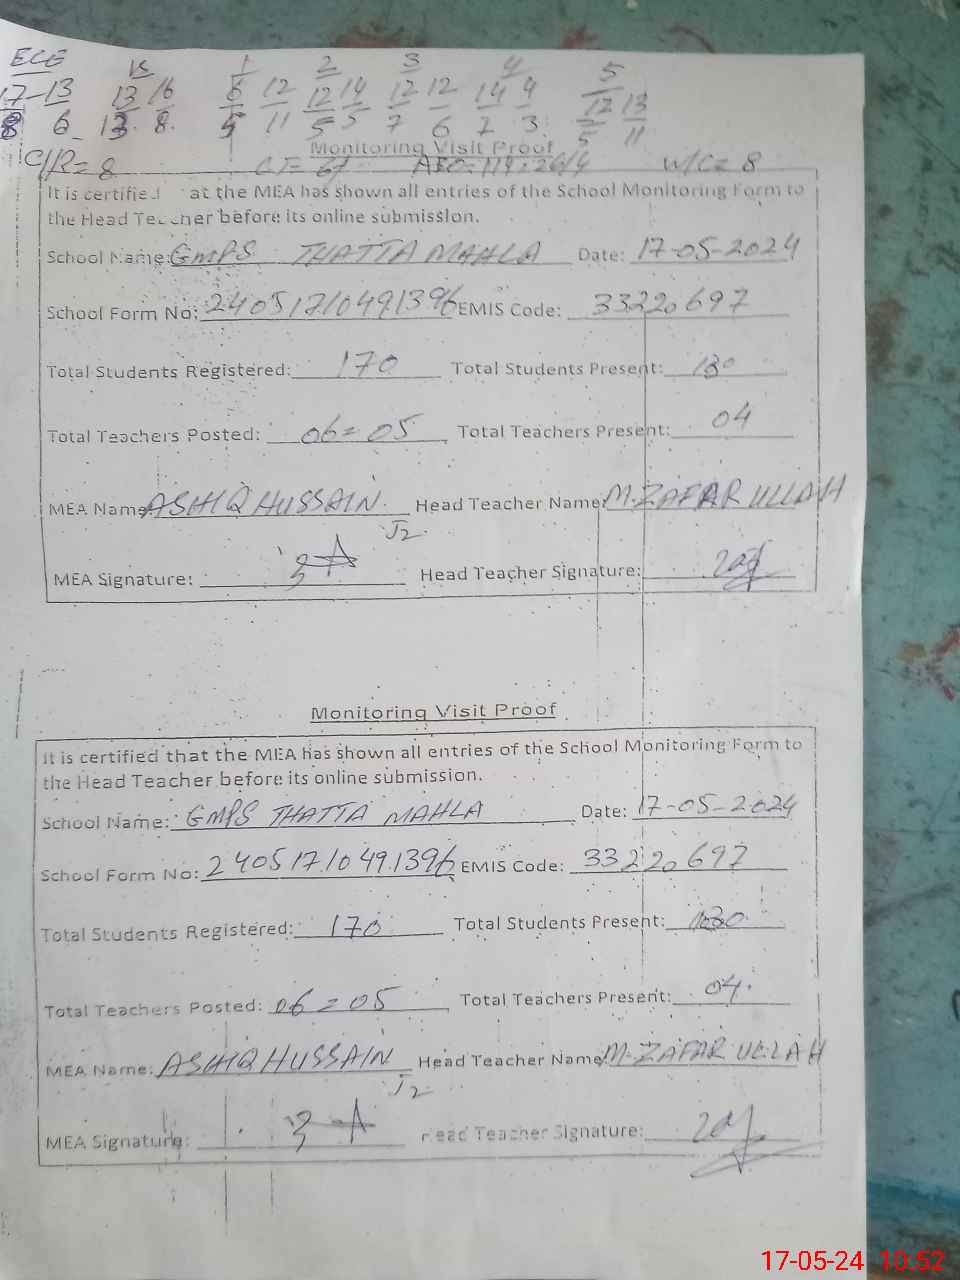 ECE K 1 2 3 4 5
17-13 13 16 6 12 12 14 12 12 14 9 12 13
8 6 13. 8. 5 11 5 5 7 6 7 3 5 11
Monitoring Visit Proof
C/R = 8 W/C = 8
It is certified at the MEA has shown all entries of the School Monitoring Form to
the Head Teacher before its online submission.
School Name: GMPS THATTA MAHLA Date: 17-05-2024
School Form No: 240517/0491396 EMIS Code: 33220697
Total Students Registered: 170 Total Students Present: 130
Total Teachers Posted: 06=05 Total Teachers Present: 04
MEA Name ASHIQ HUSSAIN. Head Teacher Name: M. ZAFAR ULLAH
J2
MEA Signature: Head Teacher Signature:
Monitoring Visit Proof
It is certified that the MEA has shown all entries of the School Monitoring Form to
the Head Teacher before its online submission.
School Name: GMPS THATTA MAHLA Date: 17-05-2024
School Form No: 240517/0491396 EMIS Code: 33220697
Total Students Registered: 170 Total Students Present: 130
Total Teachers Posted: 06=05 Total Teachers Present: 04.
MEA Name: ASHIQ HUSSAIN Head Teacher Name M. ZAFAR ULLAH
J2
MEA Signature: Head Teacher Signature:
17-05-24 10:52